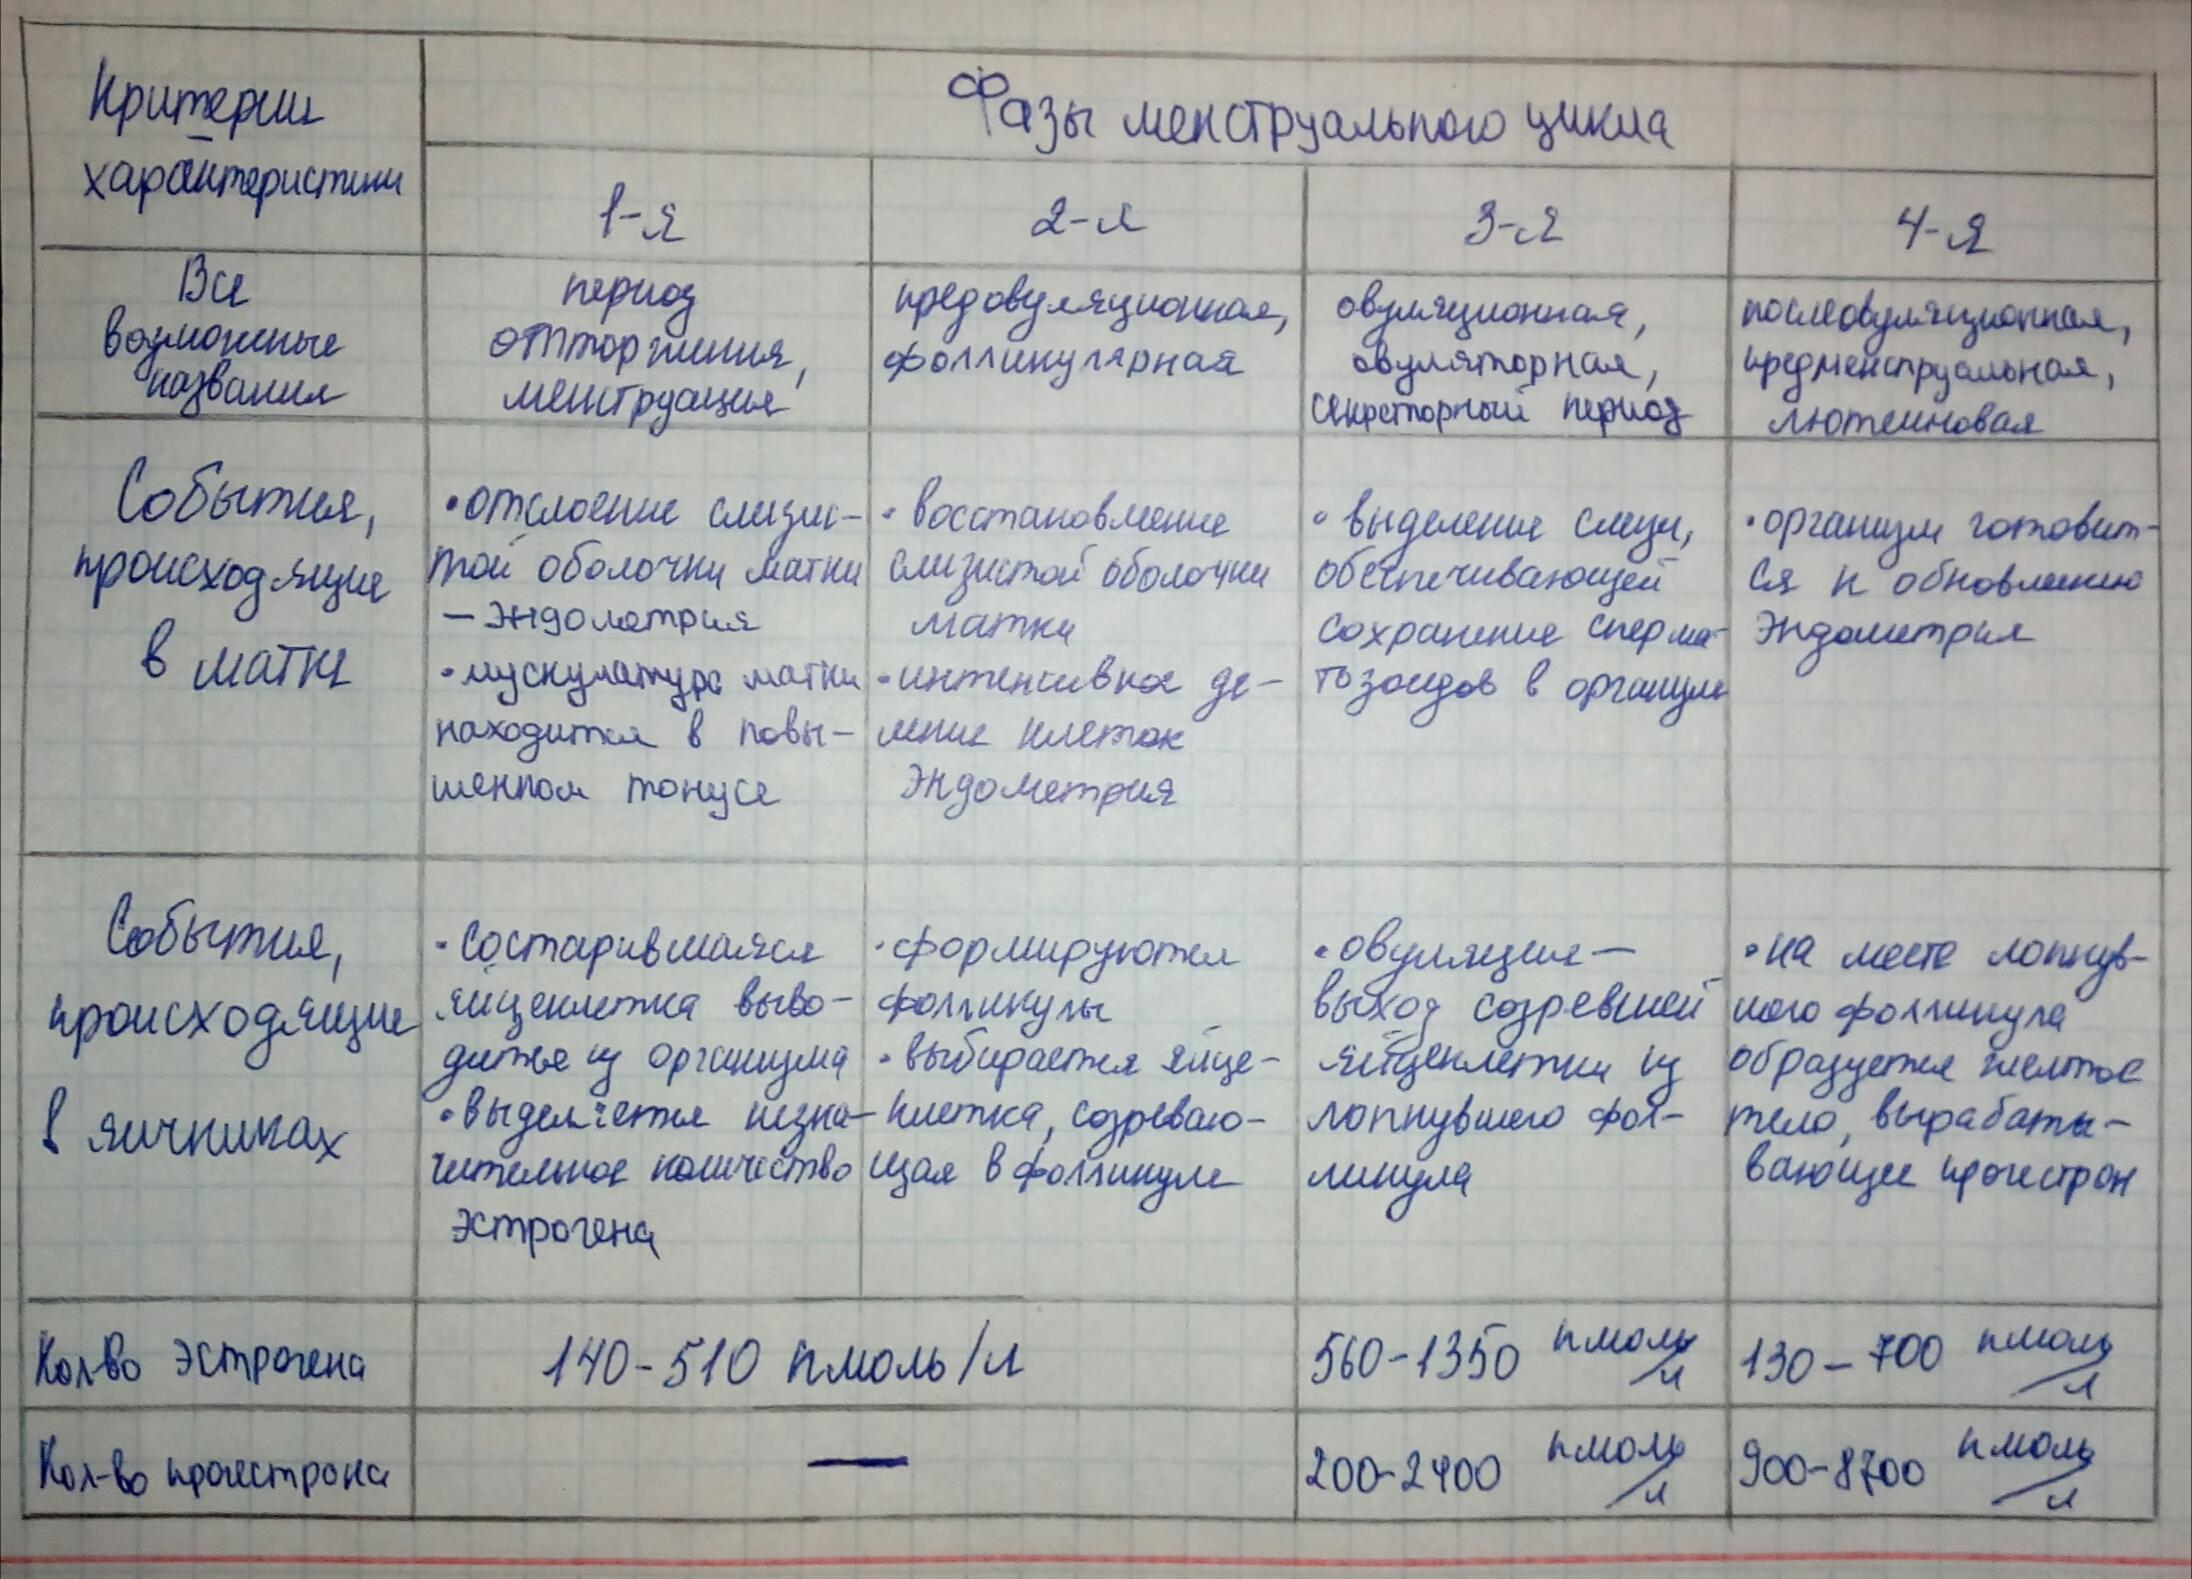 Критерии
характеристики
Фазы менструального цикла
1-я
2-я
3-я
4-я
Все
возможные
названия
период
отторжения,
менструация
предовуляционная,
фолликулярная
овуляционная,
овуляторная,
секреторный период
послеовуляционная,
предменструальная,
лютеиновая
События,
происходящие
в матке
•отслоение слизис-
той оболочки матки
— эндометрия
•мускулатура матки
находится в повы-
шенном тонусе
•восстановление
слизистой оболочки
матки
•интенсивное де-
ление клеток
эндометрия
•выделение слизи,
обеспечивающей
сохранение сперма-
тозоидов в организме
•организм готовит-
ся к обновлению
эндометрия
События,
происходящие
в яичниках
•состарившаяся
яйцеклетка выво-
дится из организма
•выделяется незна-
чительное количество
эстрогена
•формируются
фолликулы
•выбирается яйце-
клетка, созреваю-
щая в фолликуле
•овуляция —
выход созревшей
яйцеклетки из
лопнувшего фол-
ликула
•на месте лопнув-
шего фолликула
образуется желтое
тело, вырабаты-
вающее прогестрон
Кол-во эстрогена
140-510 пмоль/л
560-1350 пмоль/л
130-700 пмоль/л
Кол-во прогестрона
—
200-2400 пмоль/л
900-8700 пмоль/л